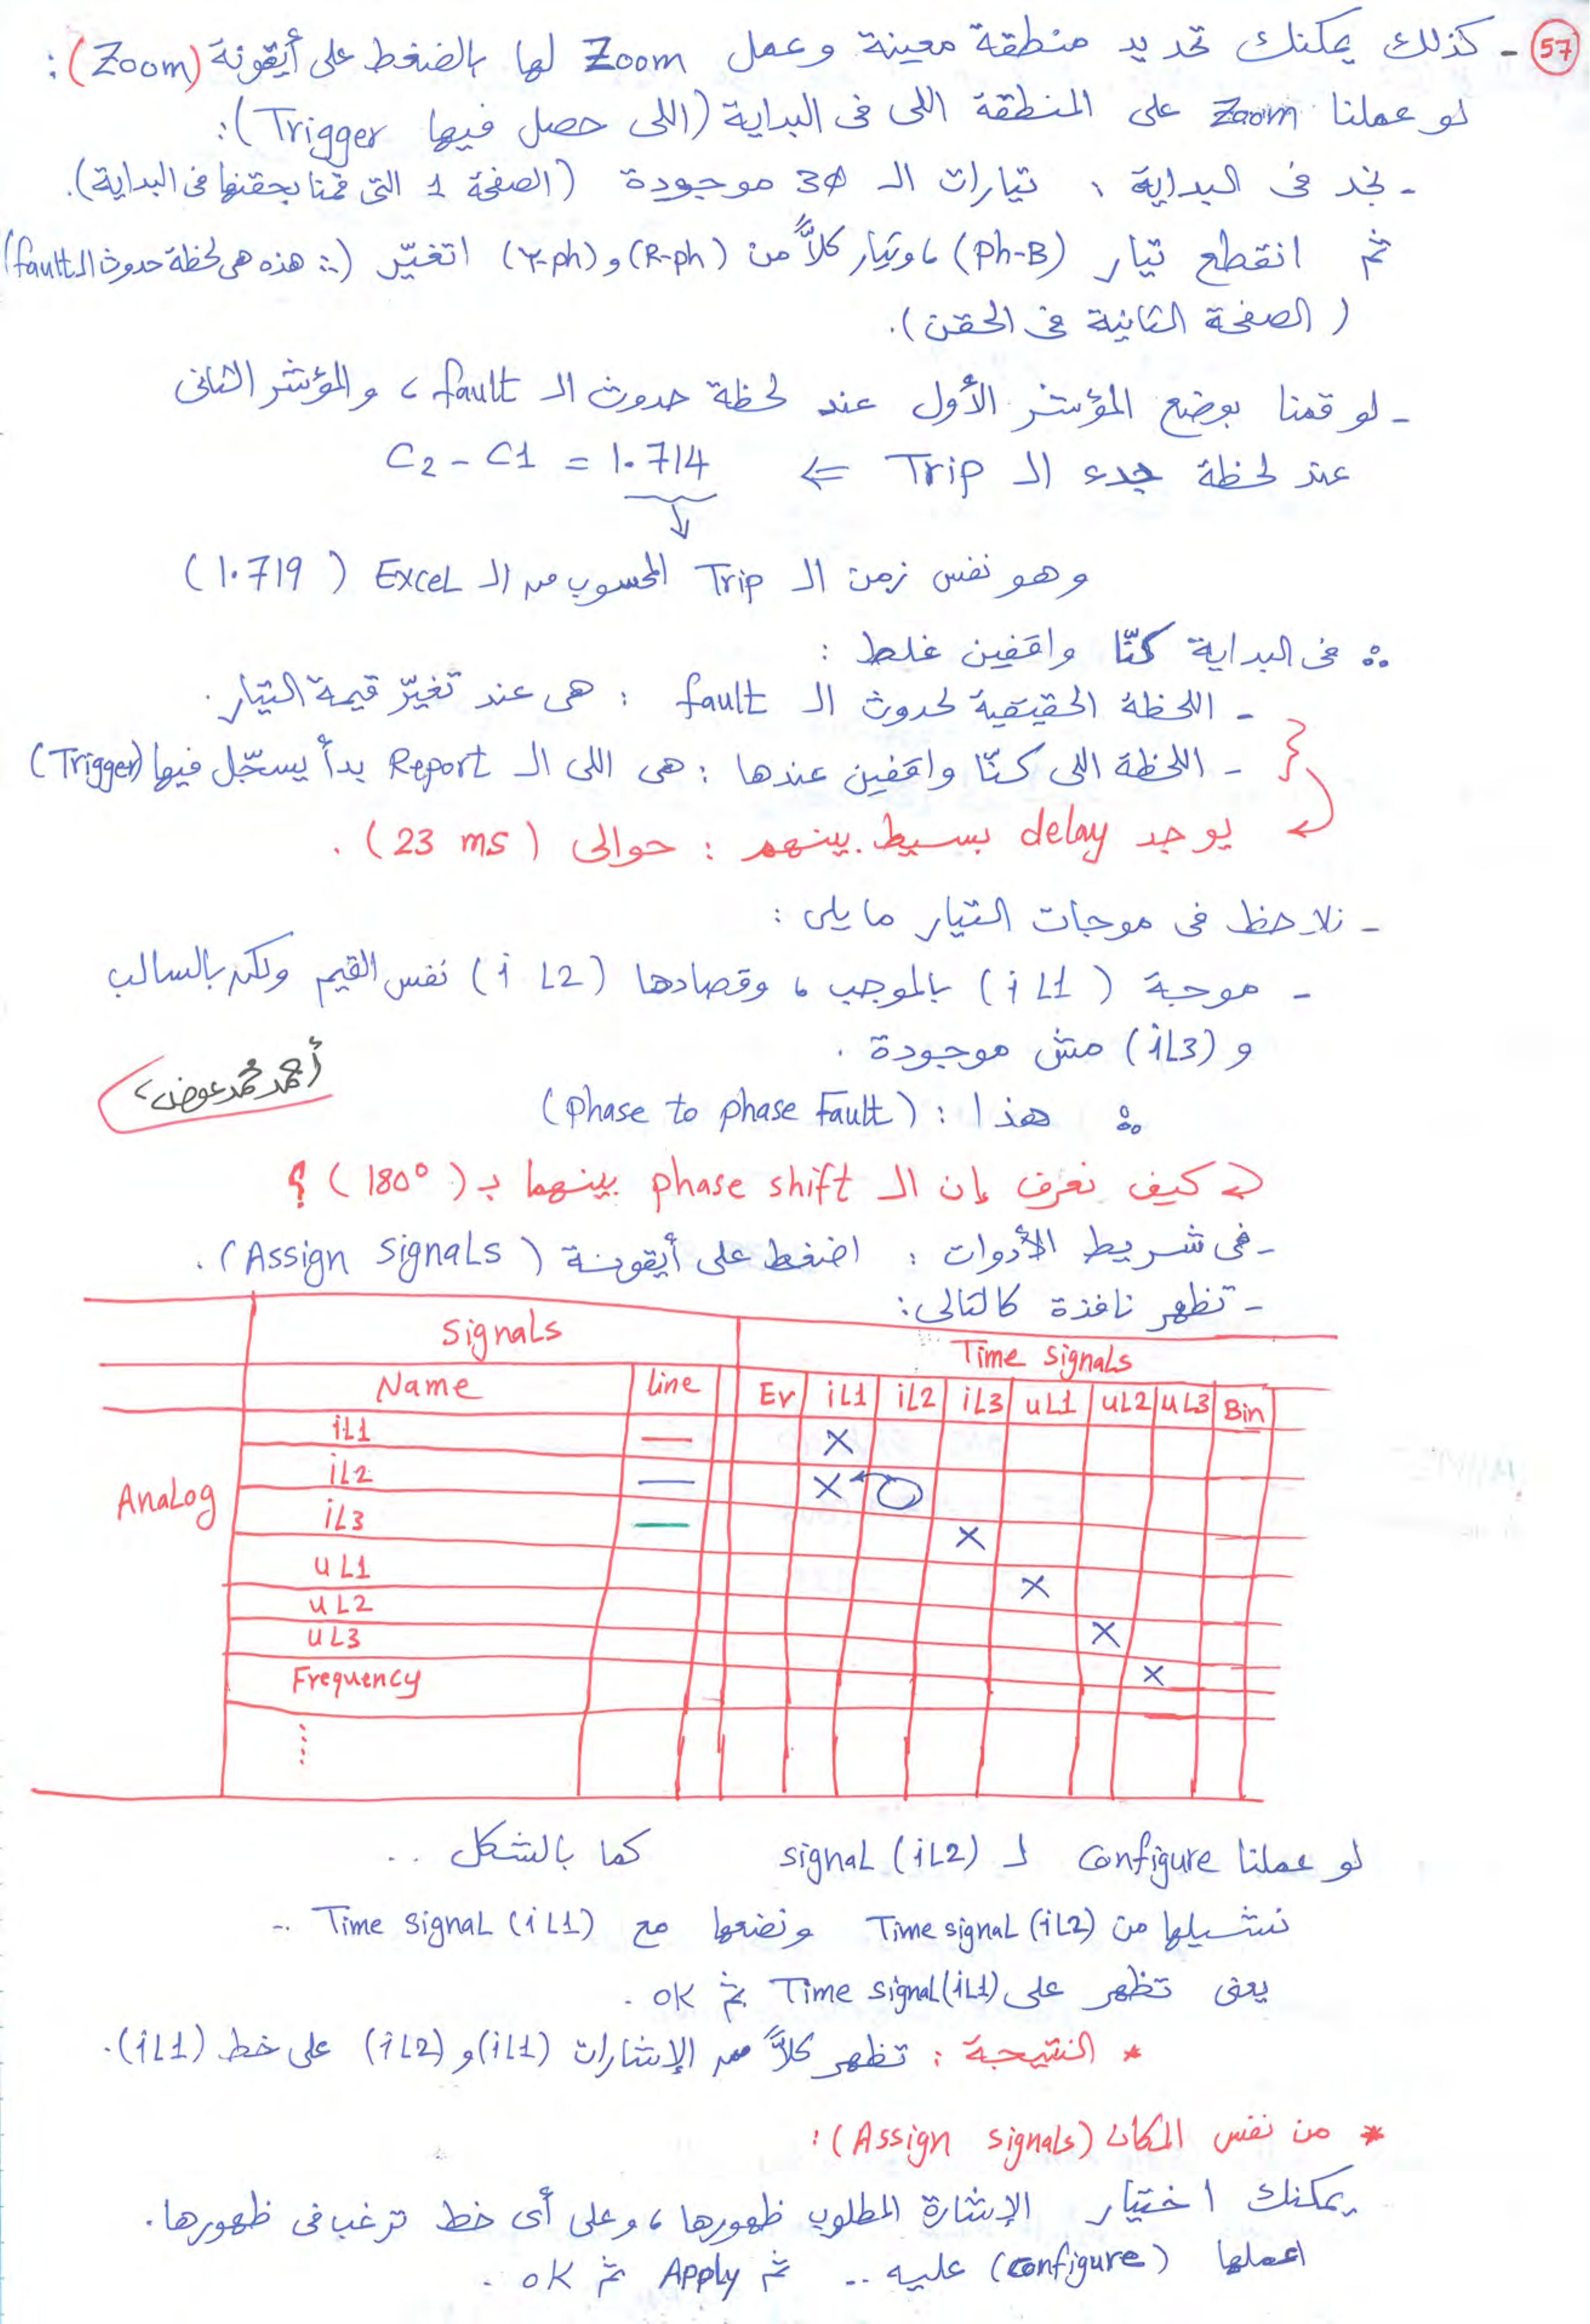 57 - كذلك يمكنك تحديد منطقة معينة وعمل Zoom لها بالضغط على أيقونة (Zoom):
لو عملنا Zoom على المنطقة اللى فى البداية (اللى حصل فيها Trigger):
- نجد فى البداية : تيارات الـ 3Ø موجودة (الصفحة 1 التى قمنا بحقنها فى البداية).
ثم انقطع تيار (Ph-B) ، وتيار كلاً من (R-ph) و (Y-ph) اتغيّر (∴ هذه هى لحظة حدوث الـ fault)
(الصفحة الثانية فى الحقن).
- لو قمنا بوضع المؤشر الأول عند لحظة حدوث الـ fault ، والمؤشر الثانى
عند لحظة بدء الـ Trip ⇐ C2 - C1 = 1.714
↓
وهو نفس زمن الـ Trip المحسوب من الـ Excel (1.719)
∴ فى البداية كنّا واقفين غلط :
- اللحظة الحقيقية لحدوث الـ fault : هى عند تغيّر قيمة التيار.
- اللحظة اللى كنّا واقفين عندها : هى اللى الـ Report بدأ يسجّل فيها (Trigger)
يوجد delay بسيط بينهم : حوالى (23 ms) .
- نلاحظ فى موجات التيار ما يلى :
- موجة (iL1) بالموجب ، وقصادها (iL2) نفس القيم ولكن بالسالب
و (iL3) مش موجودة .
أحمد محمد عوض
∴ هذا : (phase to phase Fault)
كيف نعرف إن الـ phase shift بينهما بـ (180°) ؟
- فى شريط الأدوات : اضغط على أيقونة (Assign Signals) .
- تظهر نافذة كالتالى:
Signals Time Signals
Name Line Ev iL1 iL2 iL3 uL1 uL2 uL3 Bin
Analog
iL1 — X
iL2 — X O
iL3 — X
uL1 X
uL2 X
uL3 X
Frequency
⋮
لو عملنا Configure لـ signal (iL2) كما بالشكل ..
نشيلها من Time signal (iL2) ونضعها مع Time signal (iL1) ..
يعنى تظهر على Time signal (iL1) ثم ok .
* النتيجة : تظهر كلاً من الإشارات (iL1) و (iL2) على خط (iL1).
* من نفس المكان (Assign signals) :
يمكنك اختيار الإشارة المطلوب ظهورها ، وعلى أى خط ترغب فى ظهورها.
اعملها (configure) عليه .. ثم Apply ثم ok .